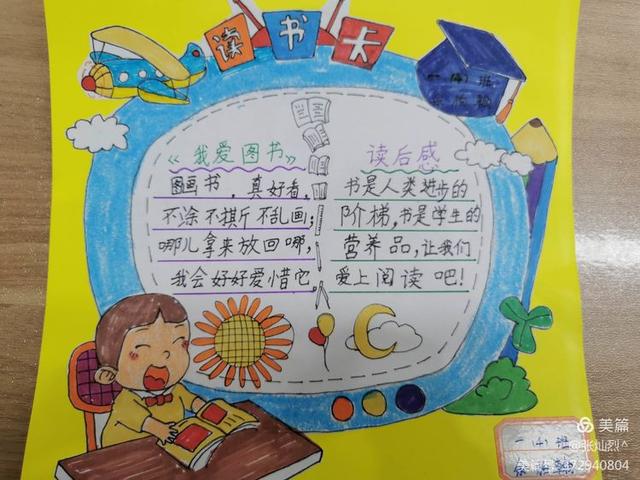 读书卡
《我爱图书》
图画书，真好看，
不涂不撕不乱画；
哪儿拿来放回哪，
我会好好爱惜它
读后感
书是人类进步的
阶梯，书是学生的
营养品，让我们
爱上阅读吧！
美篇
@张灿烈^